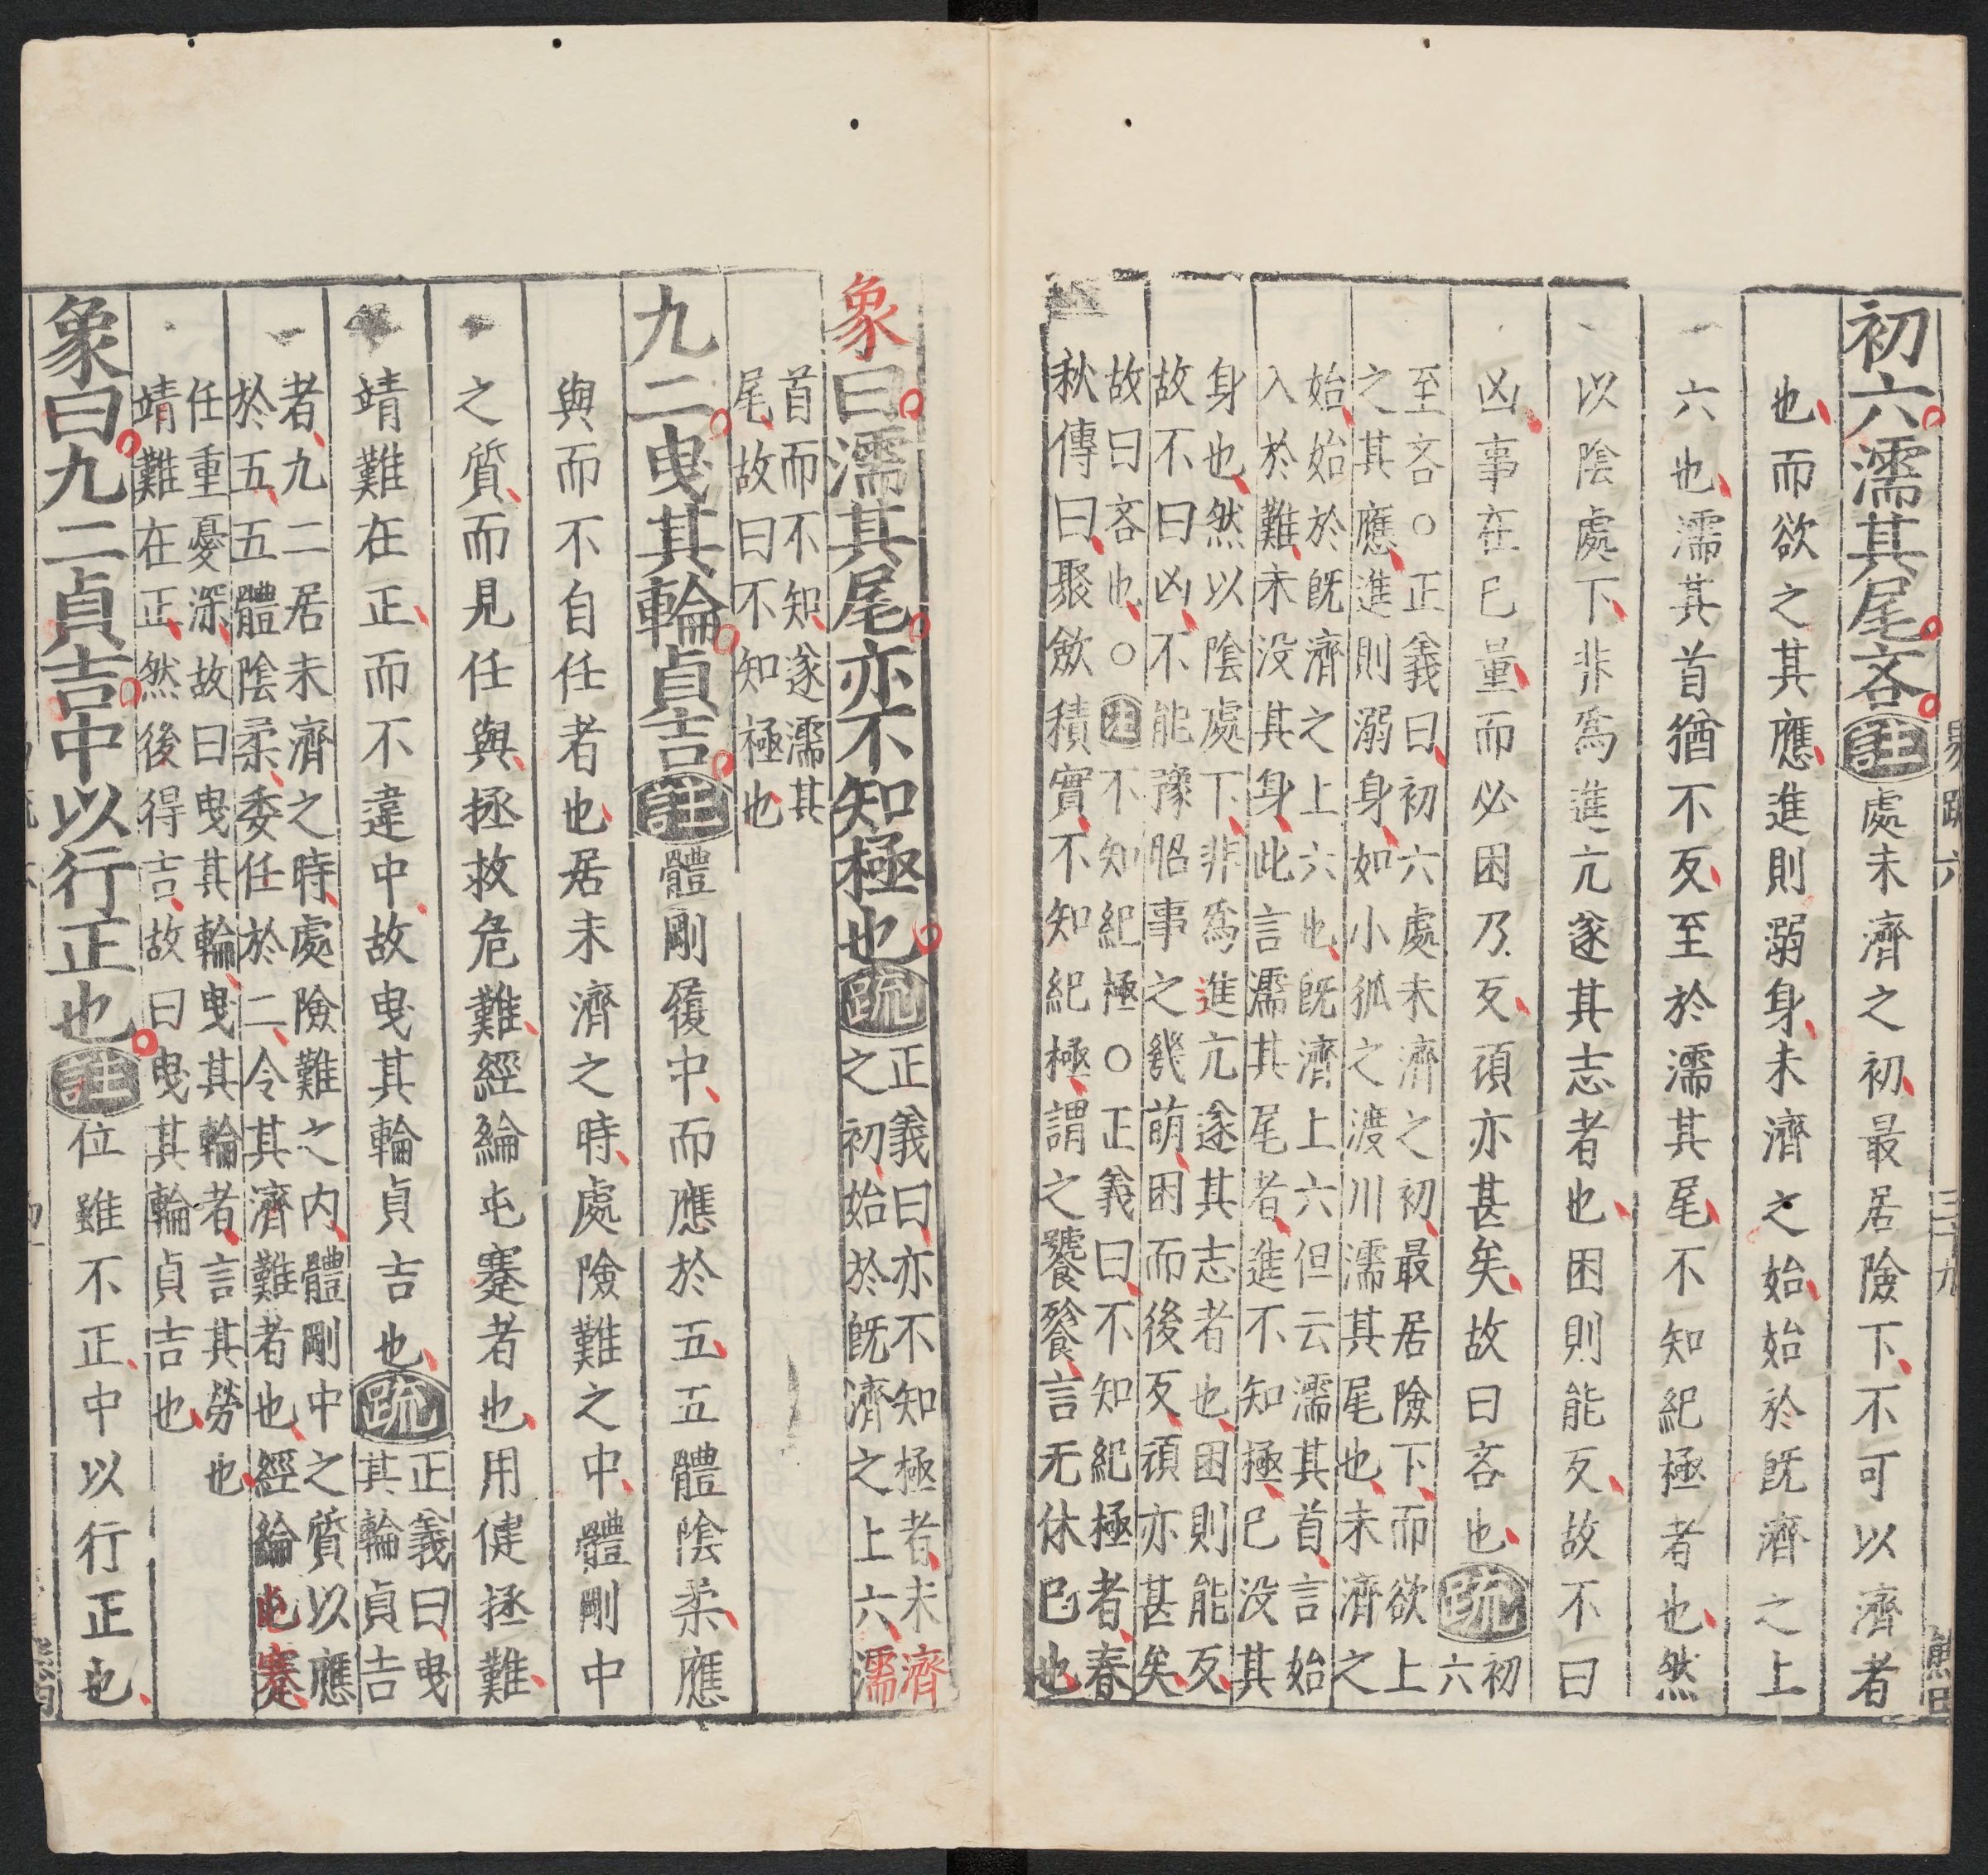 初六濡其尾吝註處未濟之初最居險下不可以濟者
也而欲之其應進則溺身未濟之始始於旣濟之上
六也濡其首猶不反至於濡其尾不知紀極者也然
以陰處下非爲進亢遂其志者也困則能反故不曰
凶事在已量而必困乃反頑亦甚矣故曰吝也疏初
六
至吝○正義曰初六處未濟之初最居險下而欲上
之其應進則溺身如小狐之渡川濡其尾也未濟之
始始於旣濟之上六也旣濟上六但云濡其首言始
入於難未没其身此言濡其尾者進不知極已没其
身也然以陰處下非爲進亢遂其志者也困則能反
故不曰凶不能豫昭事之幾萌困而後反頑亦甚矣
故曰吝也○註不知紀極○正義曰不知紀極者春
秋傳曰聚斂積實不知紀極謂之饕餮言无休已也
象曰濡其尾亦不知極也疏正義曰亦不知極者未濟
之初始於旣濟之上六濡
首而不知遂濡其
尾故曰不知極也
九二曳其輪貞吉註體剛履中而應於五五體陰柔應
與而不自任者也居未濟之時處險難之中體剛中
之質而見任與拯救危難經綸屯蹇者也用健拯難
靖難在正而不違中故曳其輪貞吉也疏正義曰曳
其輪貞吉
者九二居未濟之時處險難之内體剛中之質以應
於五五體陰柔委任於二令其濟難者也經綸屯蹇
任重憂深故曰曳其輪曳其輪者言其勞也
靖難在正然後得吉故曰曳其輪貞吉也
象曰九二貞吉中以行正也註位雖不正中以行正也